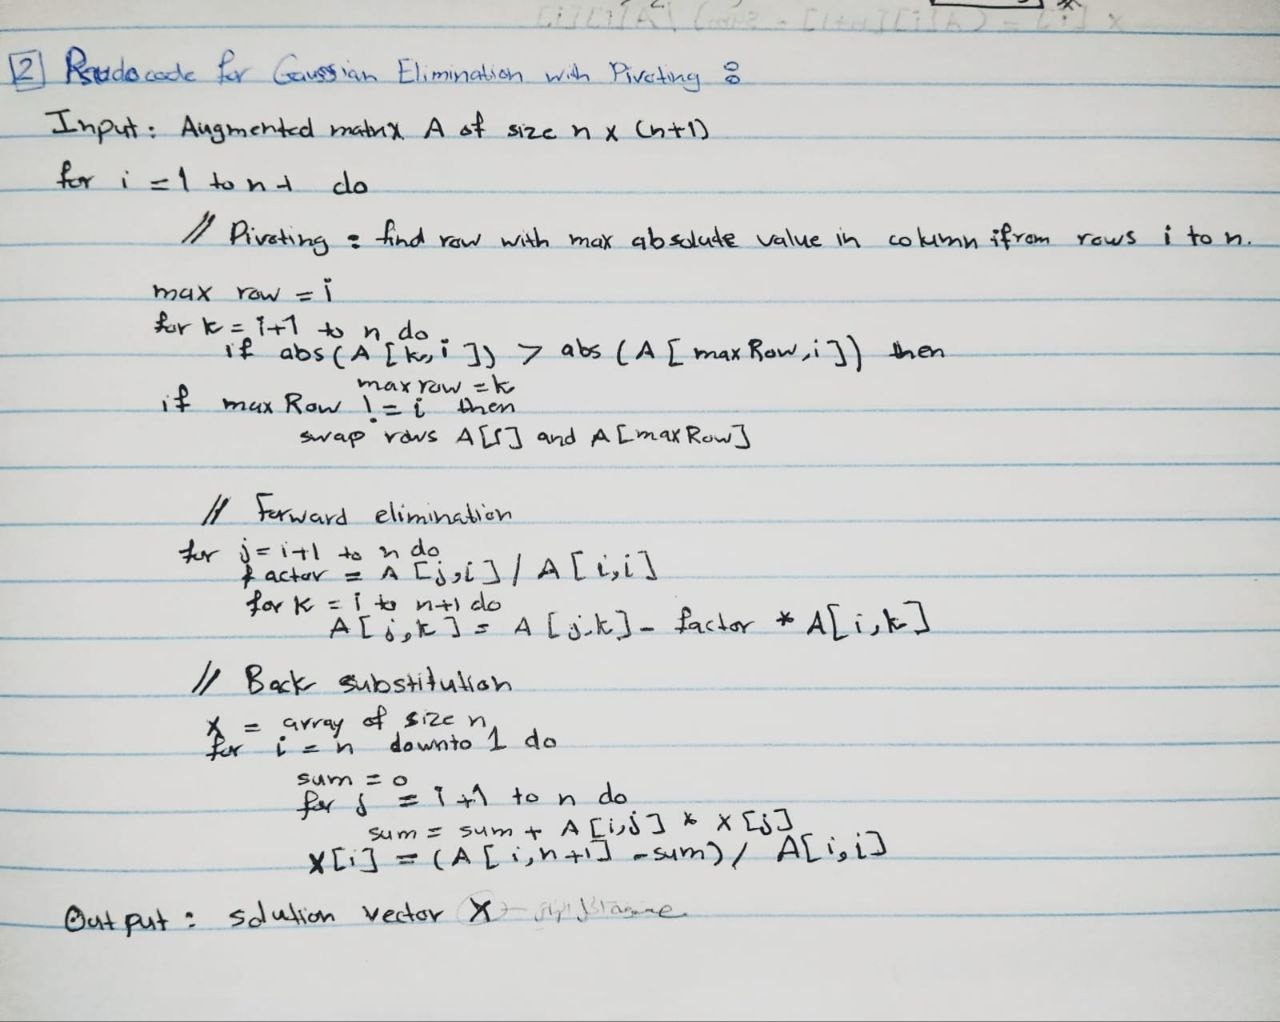 [2] Pseudocode for Gaussian Elimination with Pivoting :
Input: Augmented matrix A of size n x (n+1)
for i = 1 to n-1 do
// Pivoting : find row with max absolute value in column i from rows i to n.
max row = i
for k = i+1 to n do
if abs(A[k,i]) > abs(A[maxRow,i]) then
max row = k
if maxRow != i then
swap rows A[i] and A[maxRow]
// Forward elimination
for j = i+1 to n do
factor = A[j,i] / A[i,i]
for k = i to n+1 do
A[j,k] = A[j,k] - factor * A[i,k]
// Back substitution
X = array of size n
for i = n downto 1 do
sum = 0
for j = i+1 to n do
sum = sum + A[i,j] * X[j]
X[i] = (A[i,n+1] - sum) / A[i,i]
Output : solution vector X